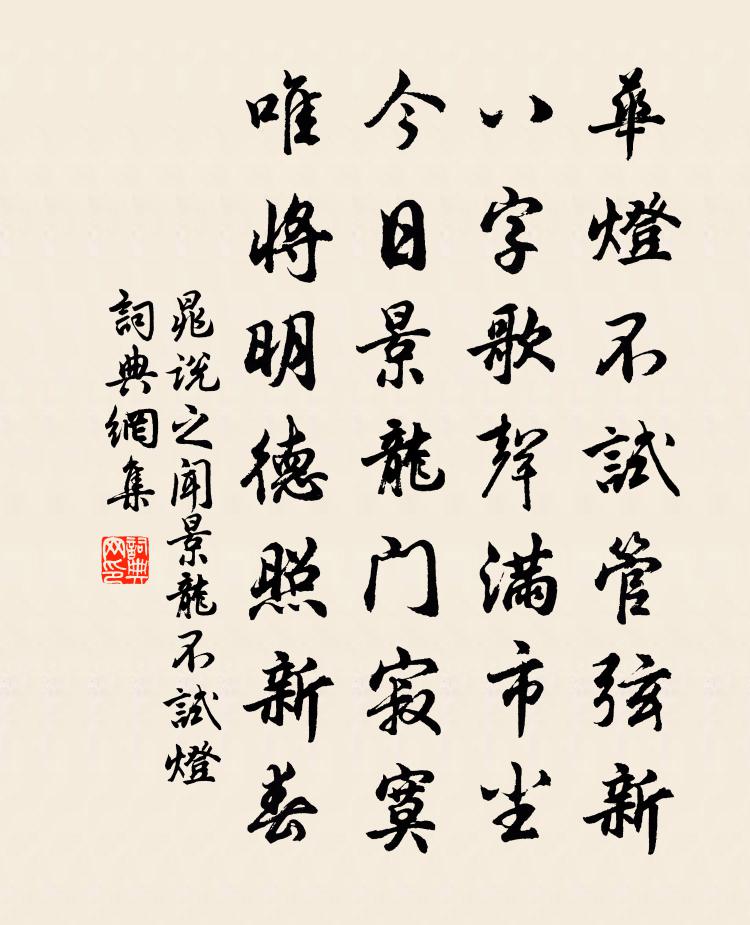 華燈不試管弦新
八字歌聲滿市尘
今日景龍门寂寞
唯将明德照新春
晁说之闻景龍不試燈
詞典網集
詞典网印